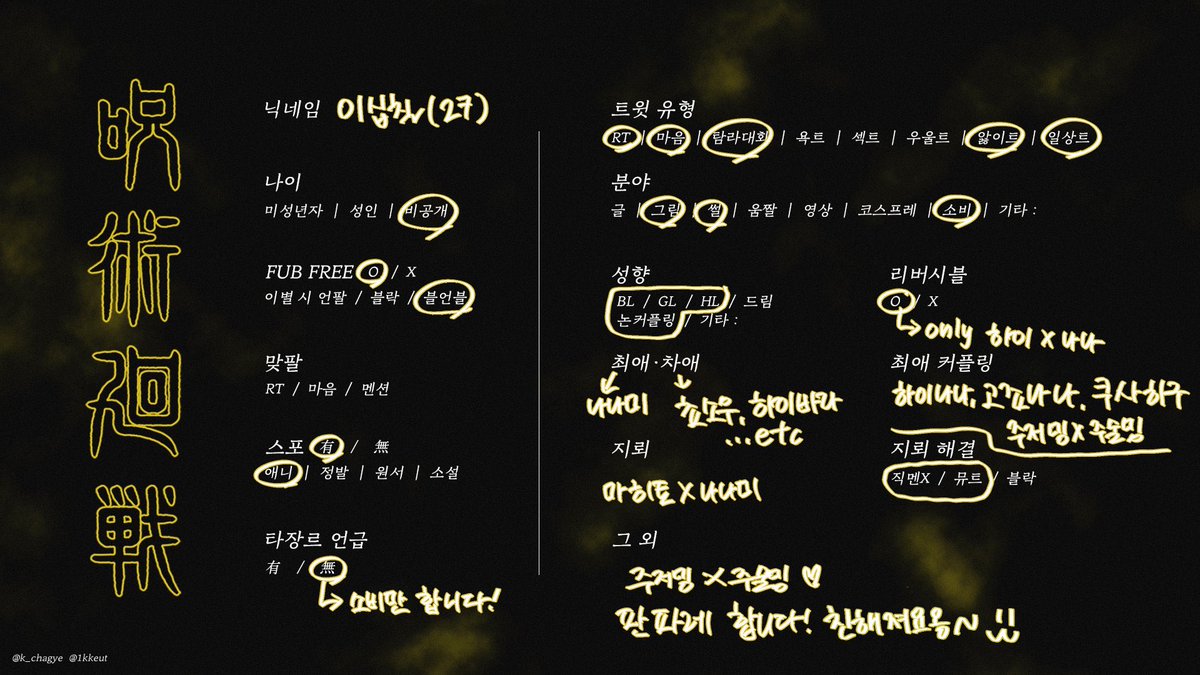 呪術廻戦
닉네임 이십칬(27)
나이
미성년자 | 성인 | 비공개
FUB FREE O / X
이별 시 언팔 / 블락 / 블언블
맞팔
RT / 마음 / 멘션
스포 有 / 無
애니 | 정발 | 원서 | 소설
타장르 언급
有 / 無
소비만 합니다!
트윗 유형
RT | 마음 | 탐라대화 | 욕트 | 섹트 | 우울트 | 앓이트 | 일상트
분야
글 | 그림 | 썰 | 움짤 | 영상 | 코스프레 | 소비 | 기타 :
성향
BL / GL / HL / 드림
논커플링 / 기타 :
리버시블
O / X
only 하이 X 나나
최애·차애
나나미
쵸소우, 하이바라
...etc
최애 커플링
하이나나, 고죠나나, 쿠사히구
주저밍X주술밍
지뢰
마히토 X 나나미
지뢰 해결
직멘X / 뮤트 / 블락
그 외
주저밍 X 주술밍 ♡
판파레 합니다! 친해져요옹~
@k_chagye @1kkeut